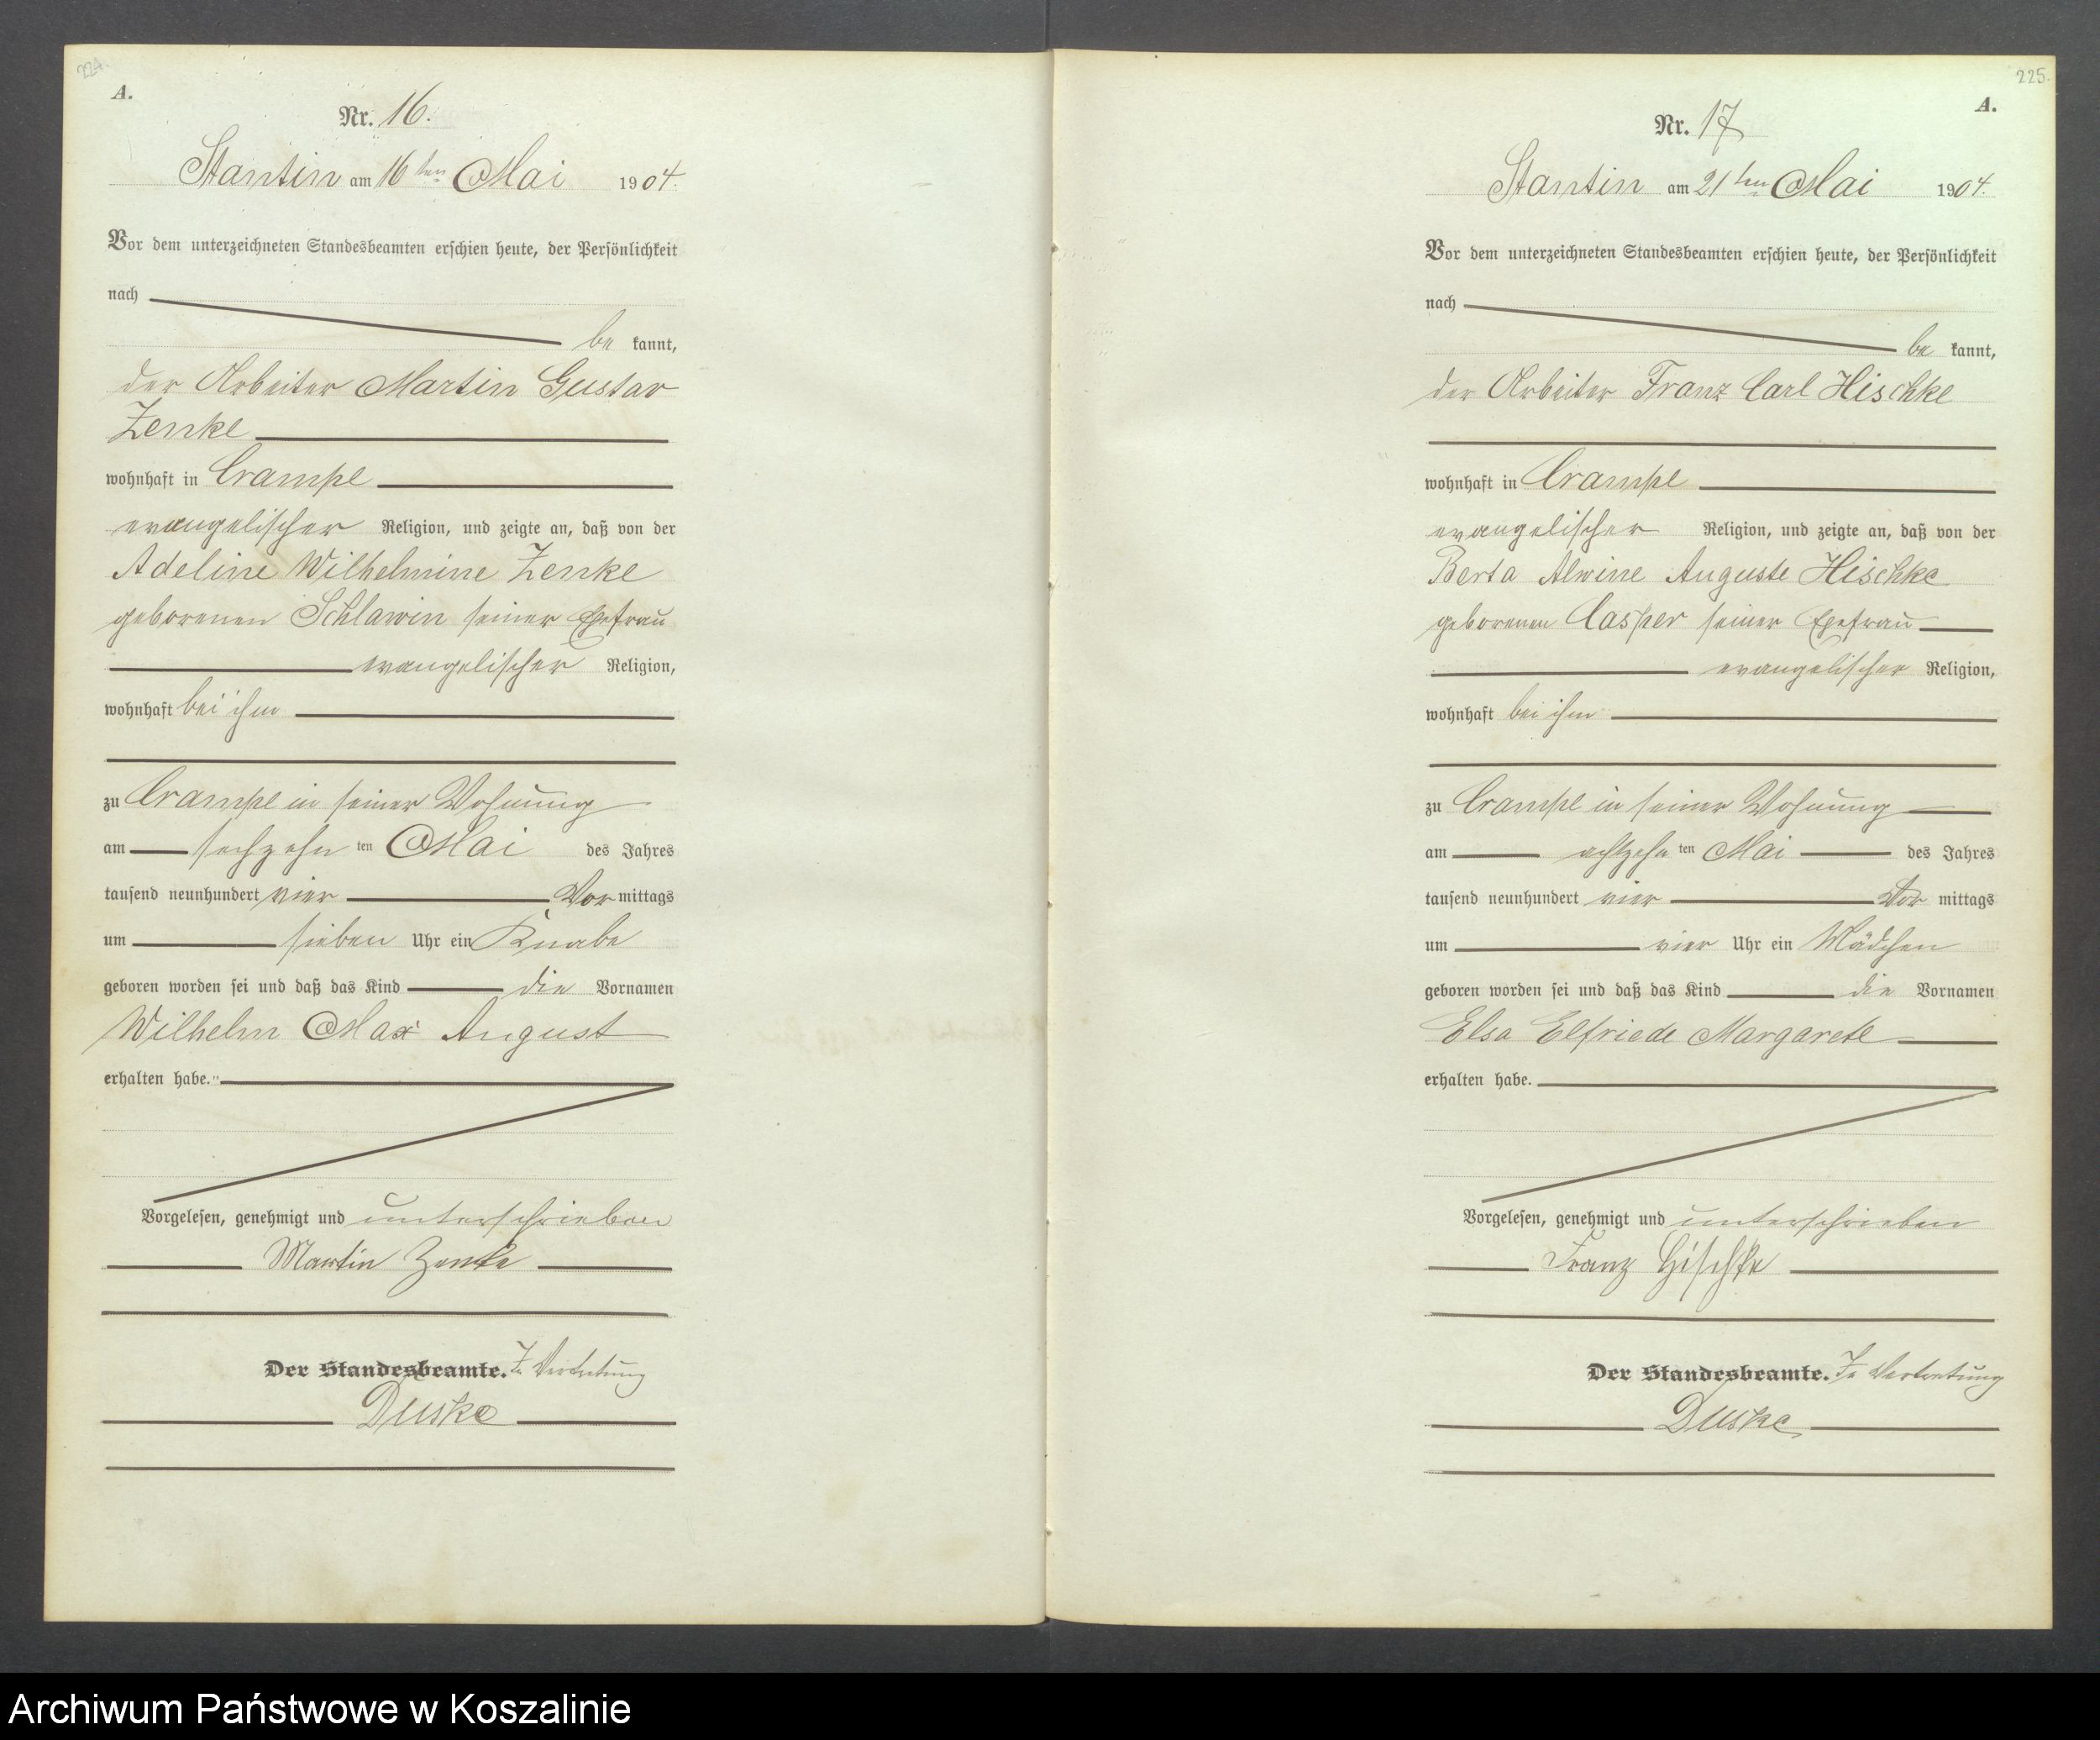 224.
A.
Nr. 16.
Stantin am 16ten Mai 1904.
Vor dem unterzeichneten Standesbeamten erschien heute, der Persönlichkeit
nach
be kannt,
der Arbeiter Martin Gustav
Zenke
wohnhaft in Crampe
evangelischer Religion, und zeigte an, daß von der
Adeline Wilhelmine Zenke
geborenen Schlawin seiner Ehefrau
evangelischer Religion,
wohnhaft bei ihm
zu Crampe in seiner Wohnung
am sechzehn ten Mai des Jahres
tausend neunhundert vier Vor mittags
um sieben Uhr ein Knabe
geboren worden sei und daß das Kind die Vornamen
Wilhelm Max August
erhalten habe.
Vorgelesen, genehmigt und unterschrieben
Martin Zenke
Der Standesbeamte. In Vertretung
Duske
225.
A.
Nr. 17
Stantin am 21ten Mai 1904.
Vor dem unterzeichneten Standesbeamten erschien heute, der Persönlichkeit
nach
be kannt,
der Arbeiter Franz Carl Hischke
wohnhaft in Crampe
evangelischer Religion, und zeigte an, daß von der
Berta Alwine Auguste Hischke
geborenen Casper seiner Ehefrau
evangelischer Religion,
wohnhaft bei ihm
zu Crampe in seiner Wohnung
am achtzehn ten Mai des Jahres
tausend neunhundert vier Vor mittags
um vier Uhr ein Mädchen
geboren worden sei und daß das Kind die Vornamen
Elsa Elfriede Margarete
erhalten habe.
Vorgelesen, genehmigt und unterschrieben
Franz Hischke
Der Standesbeamte. In Vertretung
Duske
Archiwum Państwowe w Koszalinie